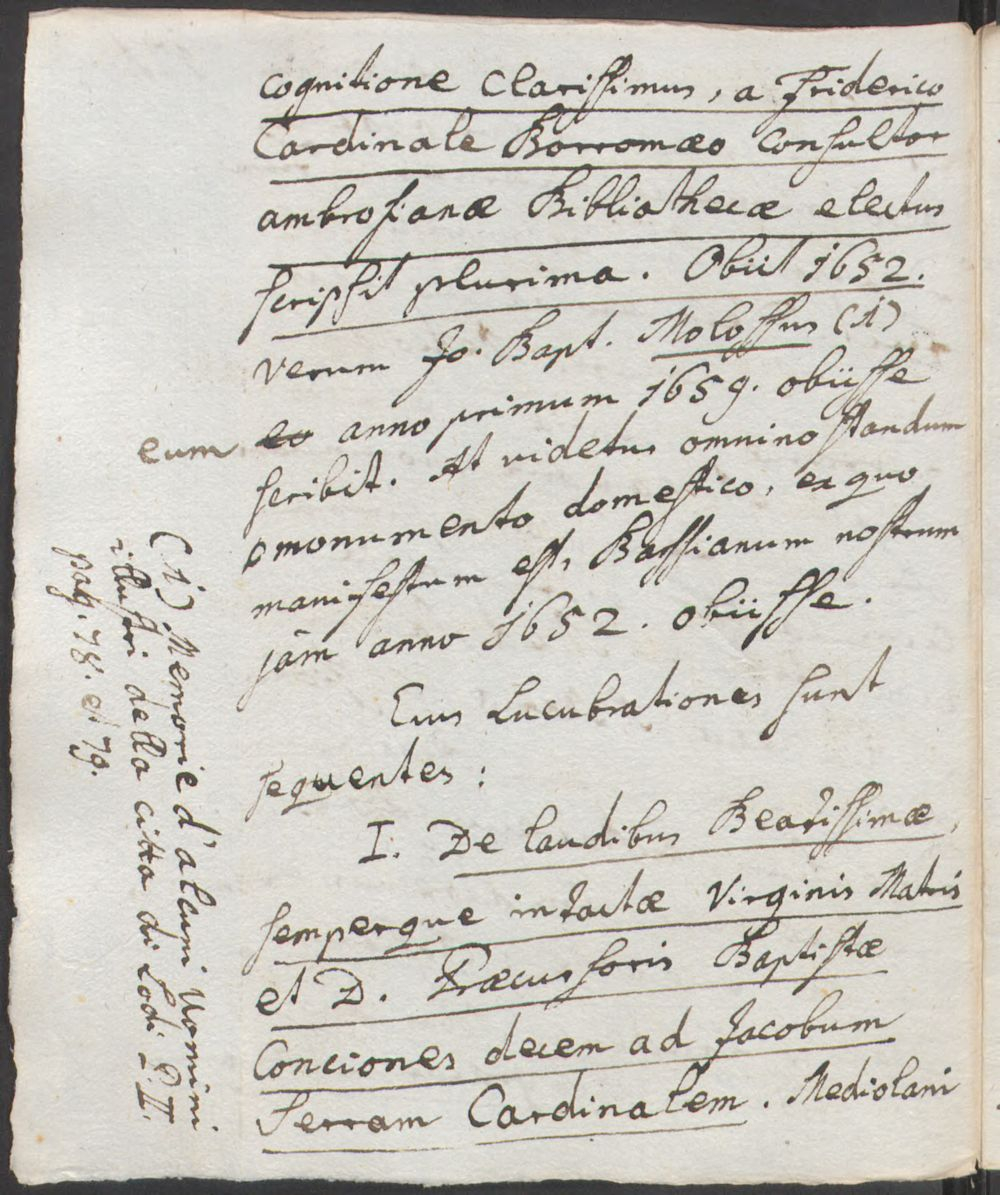 cognitione Clarissimus, a Friderico
Cardinale Borromæo Consultor
ambrosianæ Bibliothecæ electus
scripsit plurima. Obiit 1652.
verum Jo. Bapt. Molossus (1)
eum eo anno primum 1659. obiisse
scribit. At videtur omnino standum
monumento domestico, ex quo
manifestum est, Bassianum nostrum
jam anno 1652. obiisse.
Eius Lucubrationes sunt
sequentes:
I. De laudibus Beatissimæ,
semperque intactæ Virginis Matris
et D. Præcursoris Baptistæ
Conciones decem ad Jacobum
Serram Cardinalem. Mediolani
(1) Memorie d'alcuni Uomini
illustri della citta di Lodi P. II.
pag. 78. et 79.